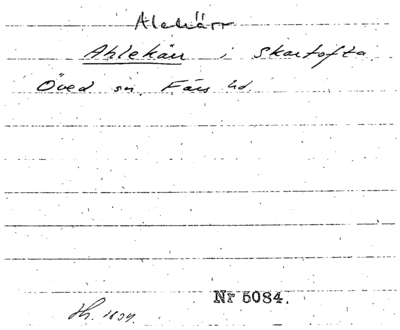 Alekärr
Ahlekärr i Skartofta
Öved sn. Färs hd.
Nr 5084.